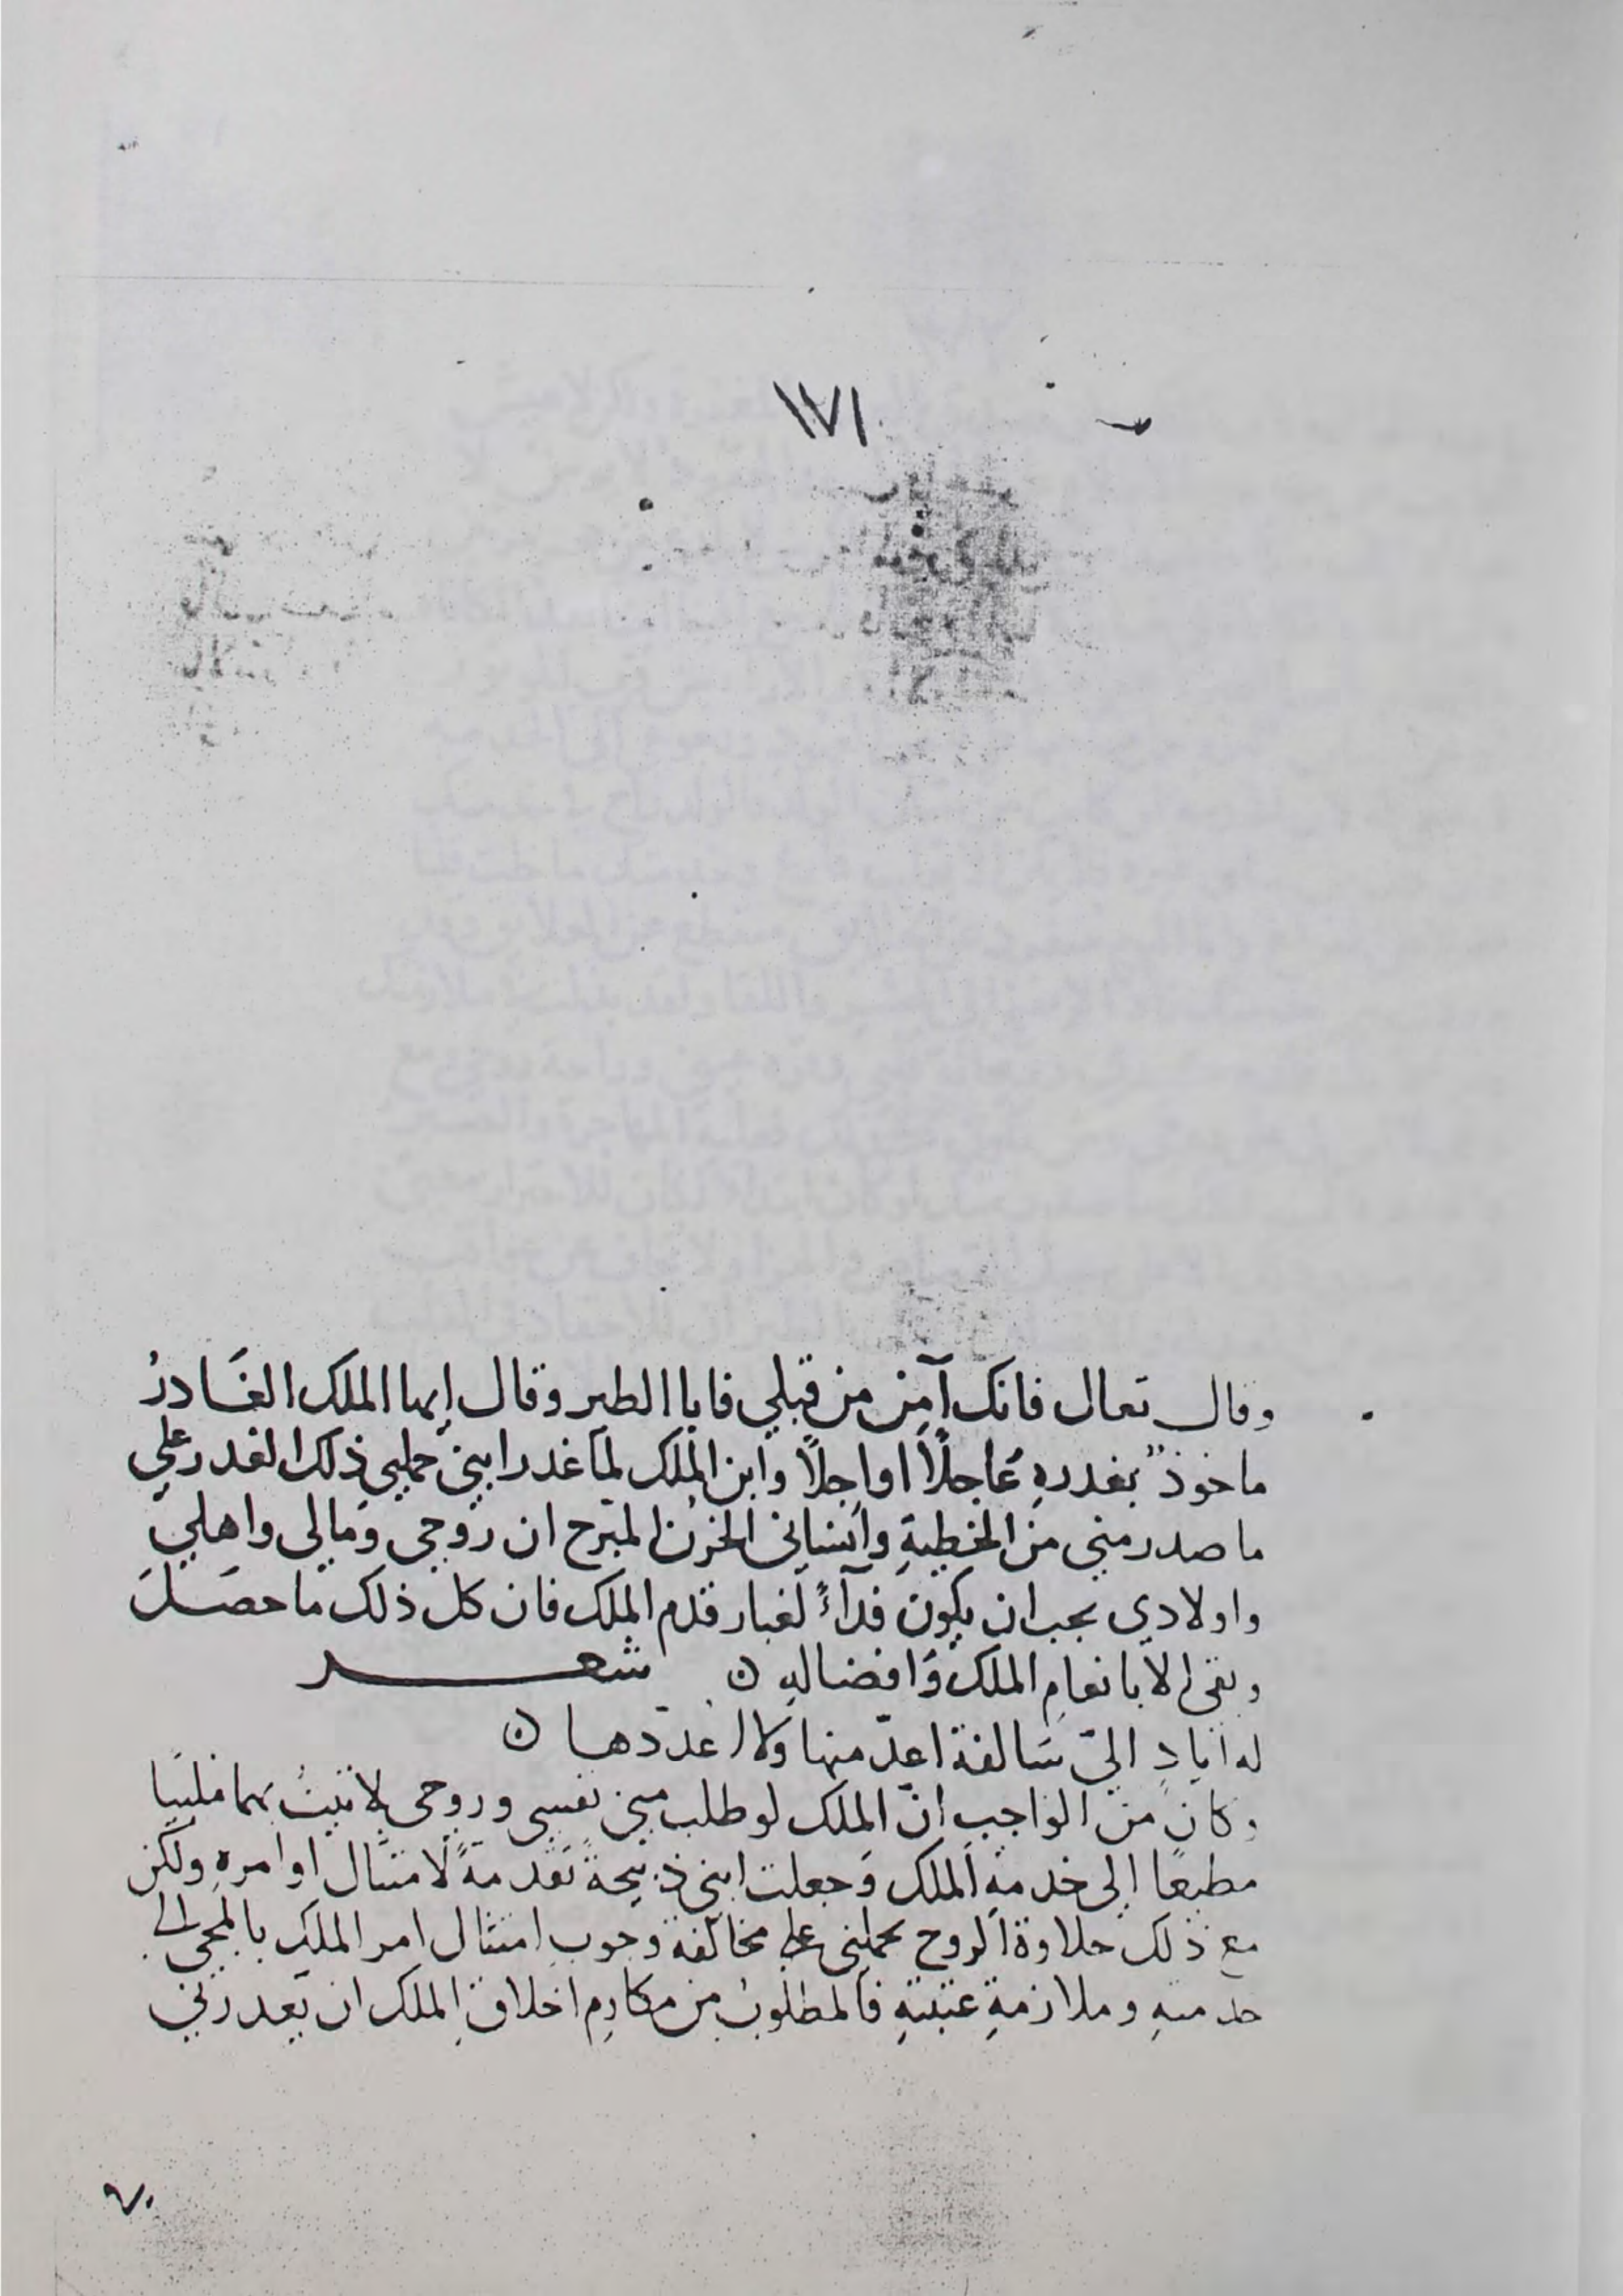 ١٧١
وقال تعال فانك آمِن من قبلي فابا الطير وقال ايها الملك الغَادرُ
ماخوذ بغدرهِ عَاجلاً او اجلاً وابن الملك لما غدر ابني حملني ذلك الغدر علي
ما صدر مني من الخطيةِ وانساني الحزن المبرح ان روحي ومالي واهلي
واولادي يجب ان يكون فدآءً لغبار قدم الملك فان كل ذلك ما حصَل
وبقى الا بانعامِ الملك وَافضالهِ ن شعر
له ايادٍ اليّ سَالفة اعدّ منها ولا اعدّدها ن
وكان من الواجب انّ الملك لو طلب مني نفسي وروحي لاتيتُ بهما ملبيا
مطيعًا الى خدمةِ الملك وجعلت ابني ذبيحةً تقدمةً لامتثال اوامرهِ ولكن
مع ذلك حلاوة الروح تحملني على مخالفة وجوب امتثال امر الملك بالمجي الى
خدمتهِ وملازمةِ عتبتهِ فالمطلوبُ من مكارِم اخلاقِ الملك ان يعدرني